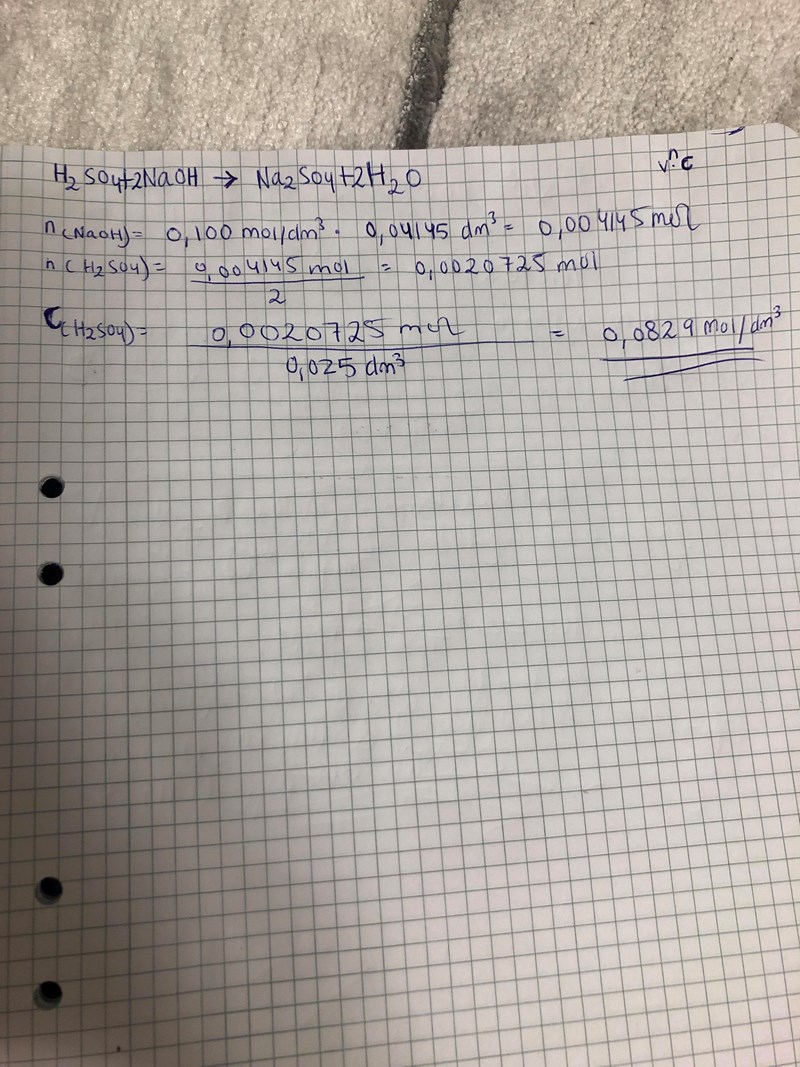 H₂SO4+2NaOH → Na₂SO4+2H₂O
n
V·C
n(NaOH)= 0,100 mol/dm³ · 0,04145 dm³ = 0,004145 mol
n(H2SO4)= 0,004145 mol / 2 = 0,0020725 mol
C(H2SO4)= 0,0020725 mol / 0,025 dm³ = 0,0829 mol/dm³